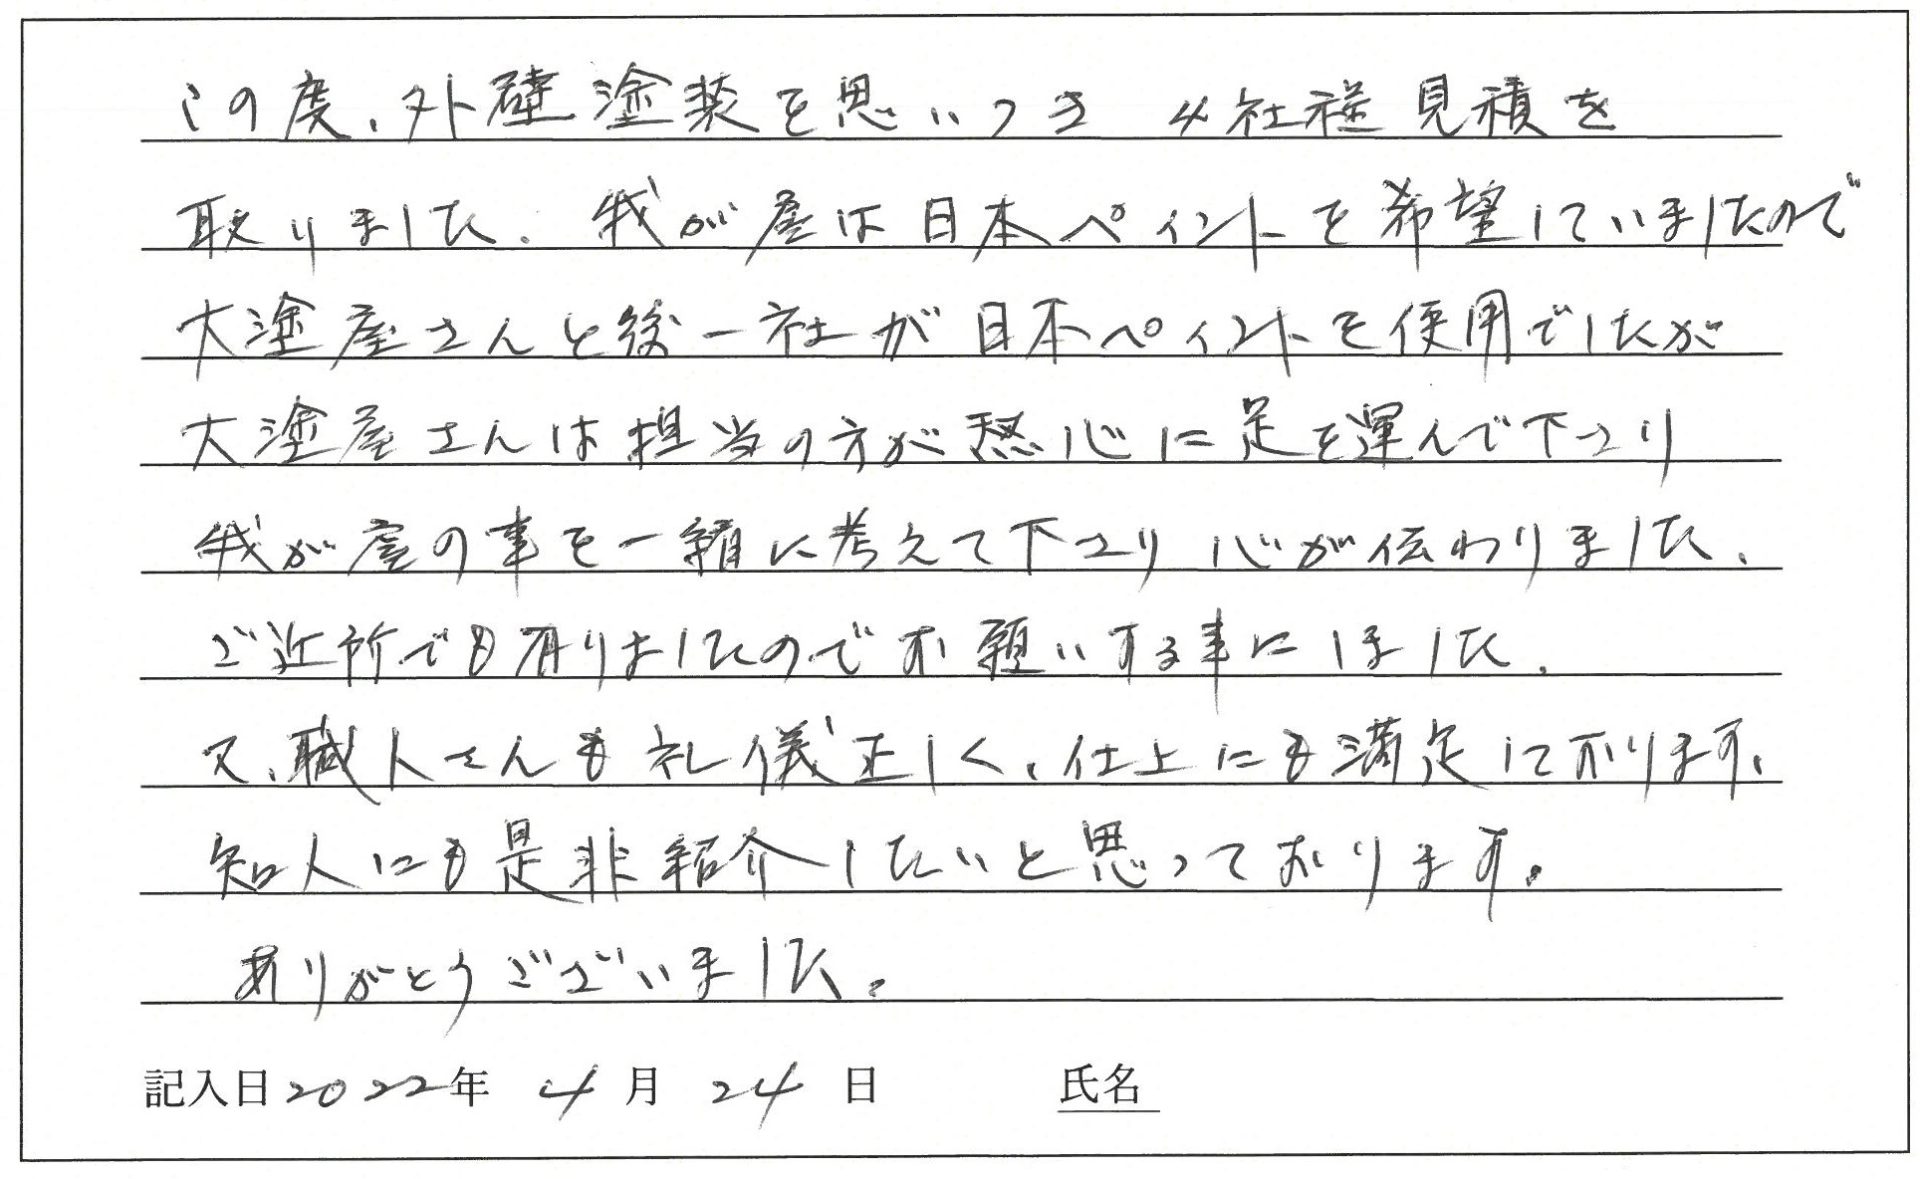 この度、外壁塗装を思いつき 4社様見積を
取りました。我が家は日本ペイントを希望していましたので
大塗屋さんと後一社が日本ペイントを使用でしたが
大塗屋さんは担当の方が熱心に足を運んで下さり
我が家の事を一緒に考えて下さり心が伝わりました。
ご近所でも有りましたのでお願いする事にしました。
又、職人さんも礼儀正しく、仕上にも満足しております。
知人にも是非紹介したいと思っております。
ありがとうございました。
記入日2022年 4月 24日 氏名